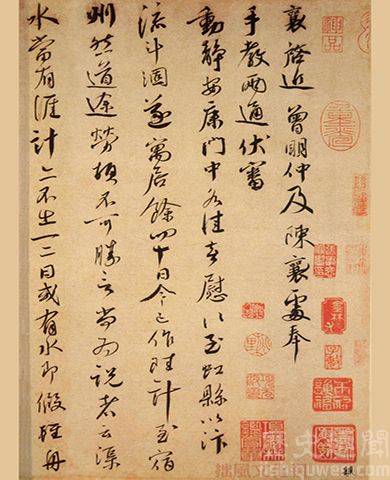 襄啓近曾明仲及陳襄處奉
手教兩通伏審
動靜安康門中各佳喜慰以至虹縣以汴
流斗涸遂寓居餘四十日今已作陸計至宿
州然道途勞頓不可勝言尚為說者云渠
水當有涯計亦不出一二日或有水即假輕舟